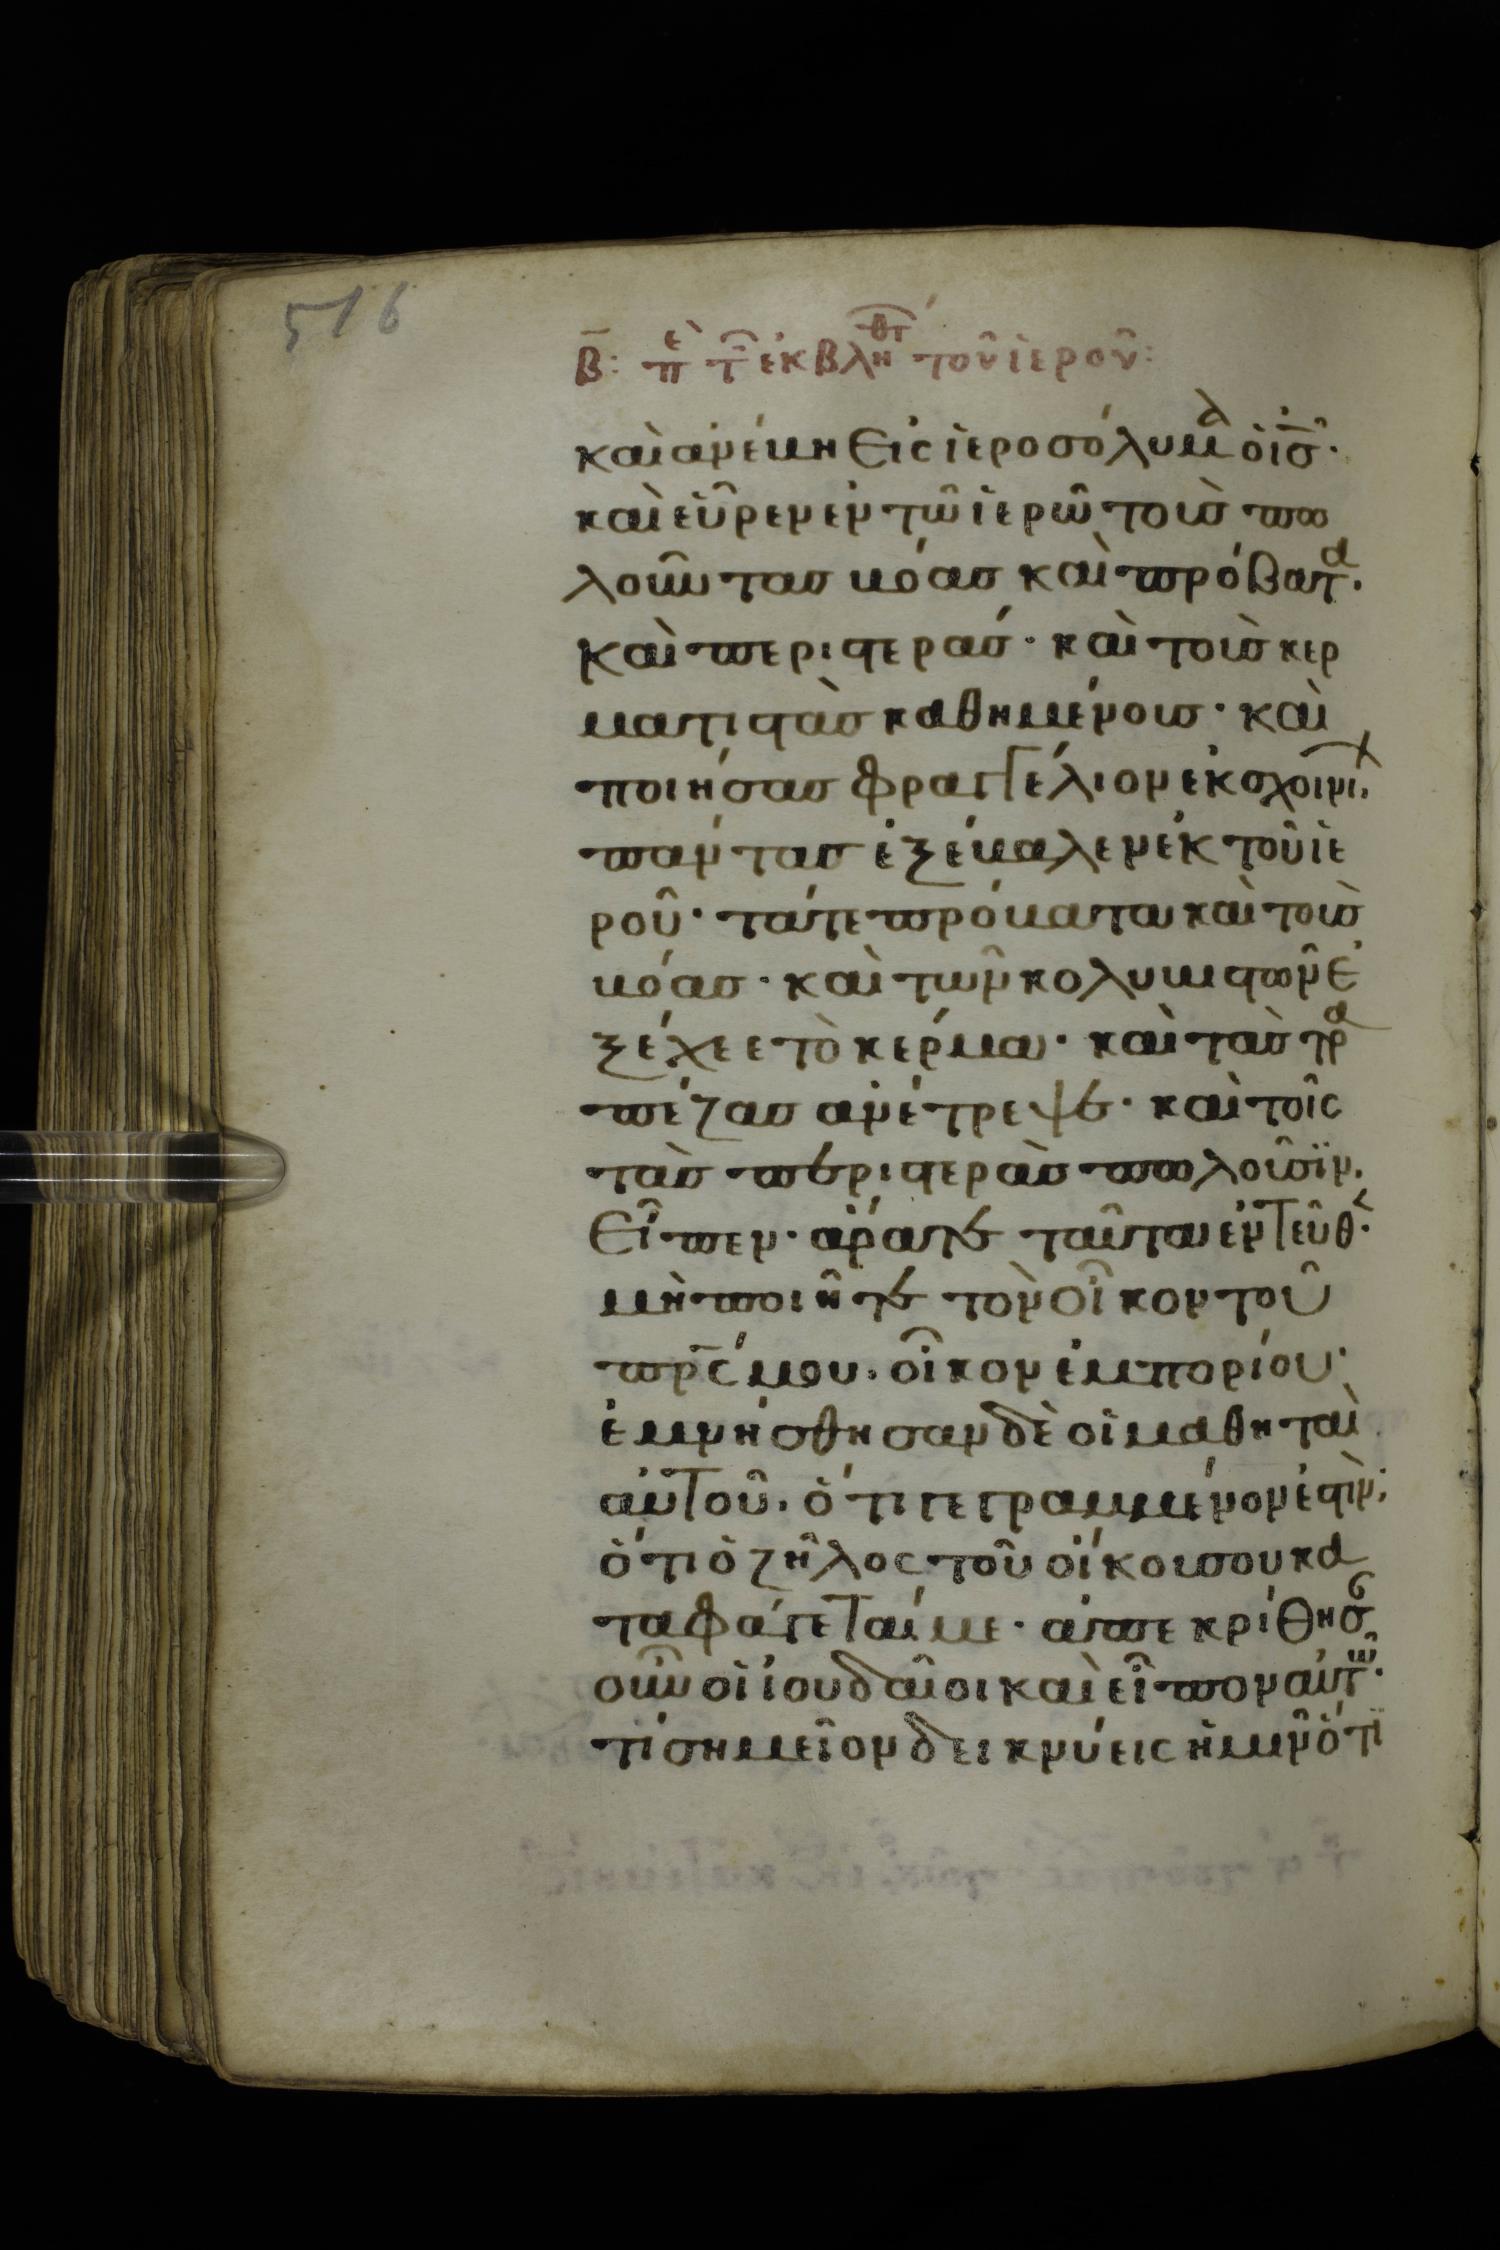 516
β: πὲ τ̑ ἐκβληθτ τοῦ ἱεροῦ:
καὶ ἀνέβη εἰς ἱεροσόλυμα ὁ ἰσ̅·
καὶ εὗρεν ἐν τῶ ἱερῶ τοὺσ πω
λοῦντασ βόασ καὶ πρόβατα·
καὶ περιστεράσ· καὶ τοὺσ κερ
ματιστὰσ καθημένουσ· καὶ
ποιήσασ φραγγέλιον ἐκ σχοινί,
πάντασ ἐξέβαλεν ἐκ τοῦ ἱε
ροῦ· τά τε πρόβατα καὶ τοὺσ
βόασ· καὶ τῶν κολυβιστῶν ἐ
ξέχεε τὸ κέρμα· καὶ τὰσ τρα
πέζασ ἀνέτρεψε· καὶ τοῖς
τὰσ περιστερὰσ πωλοῦσϊν.
εἶπεν· ἄρατε ταῦτα ἐντεῦθ·
μὴ ποιῆτε τὸν οἶκον τοῦ
πρ̅ς μου. οἶκον ἐμπορίου·
ἐμνήσθησαν δὲ οἱ μαθηταὶ
αὐτοῦ. ὅτι γεγραμμένον ἐστὶν·
ὅτι ὁ ζῆλος τοῦ οἴκου σου κα
ταφάγεταί με· ἀπεκρίθησ
οὖν οἱ ἰουδαῖοι καὶ εἶπον αὐτῶ·
τί σημεῖον δεικνύεις ἡμῖν ὅτϊ